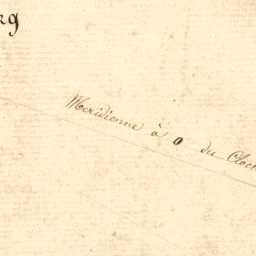 rg
Meridienne à 0 du Cloch